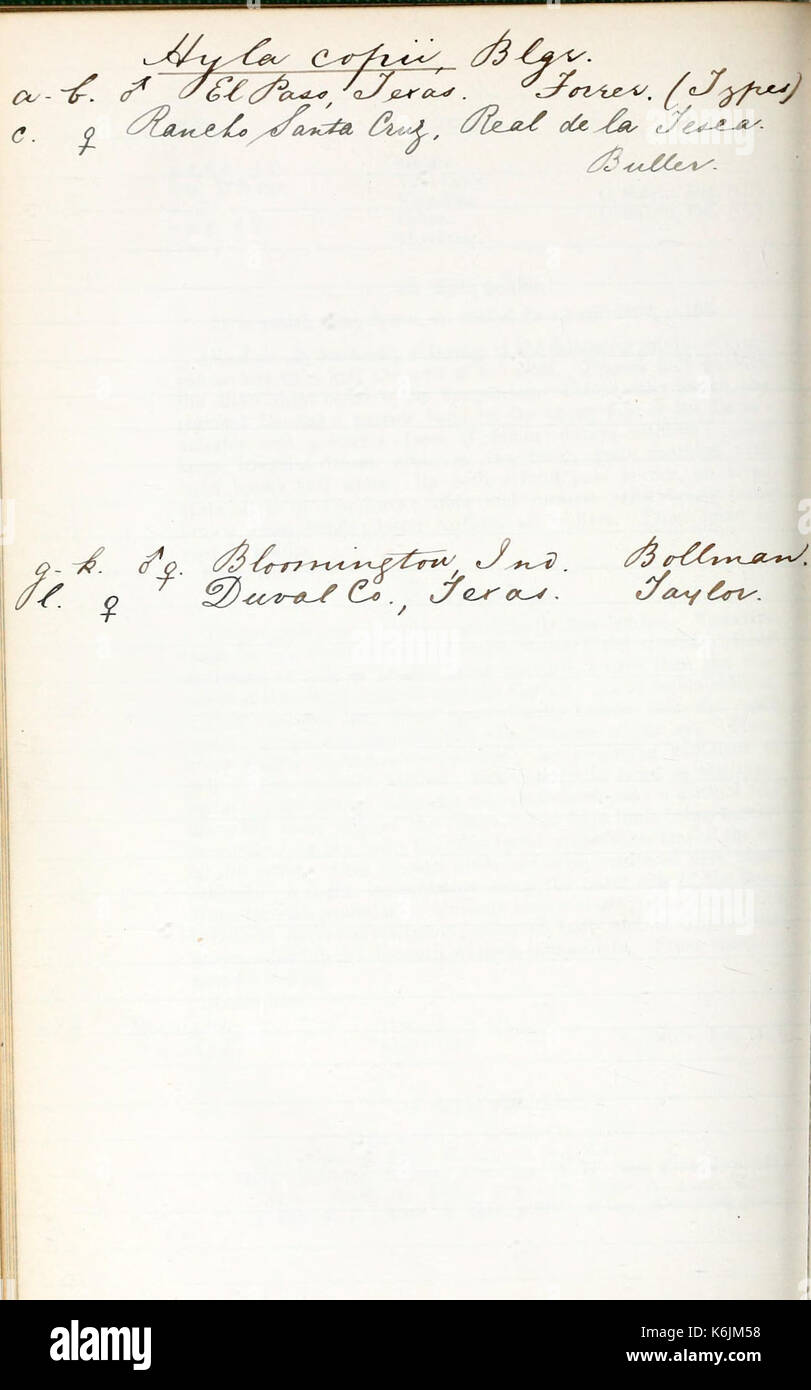 Hyla copii, Blgr.
a-b. ♂ El Paso, Texas. Forrer. (Types)
c. ♀ Rancho Santa Cruz, Real de la Tesca.
Buller.
g-k. ♂♀. Bloomington, Ind. Bollman.
l. ♀ Duval Co., Texas. Taylor.
alamy
alamy
Image ID: K6JM58
www.alamy.com